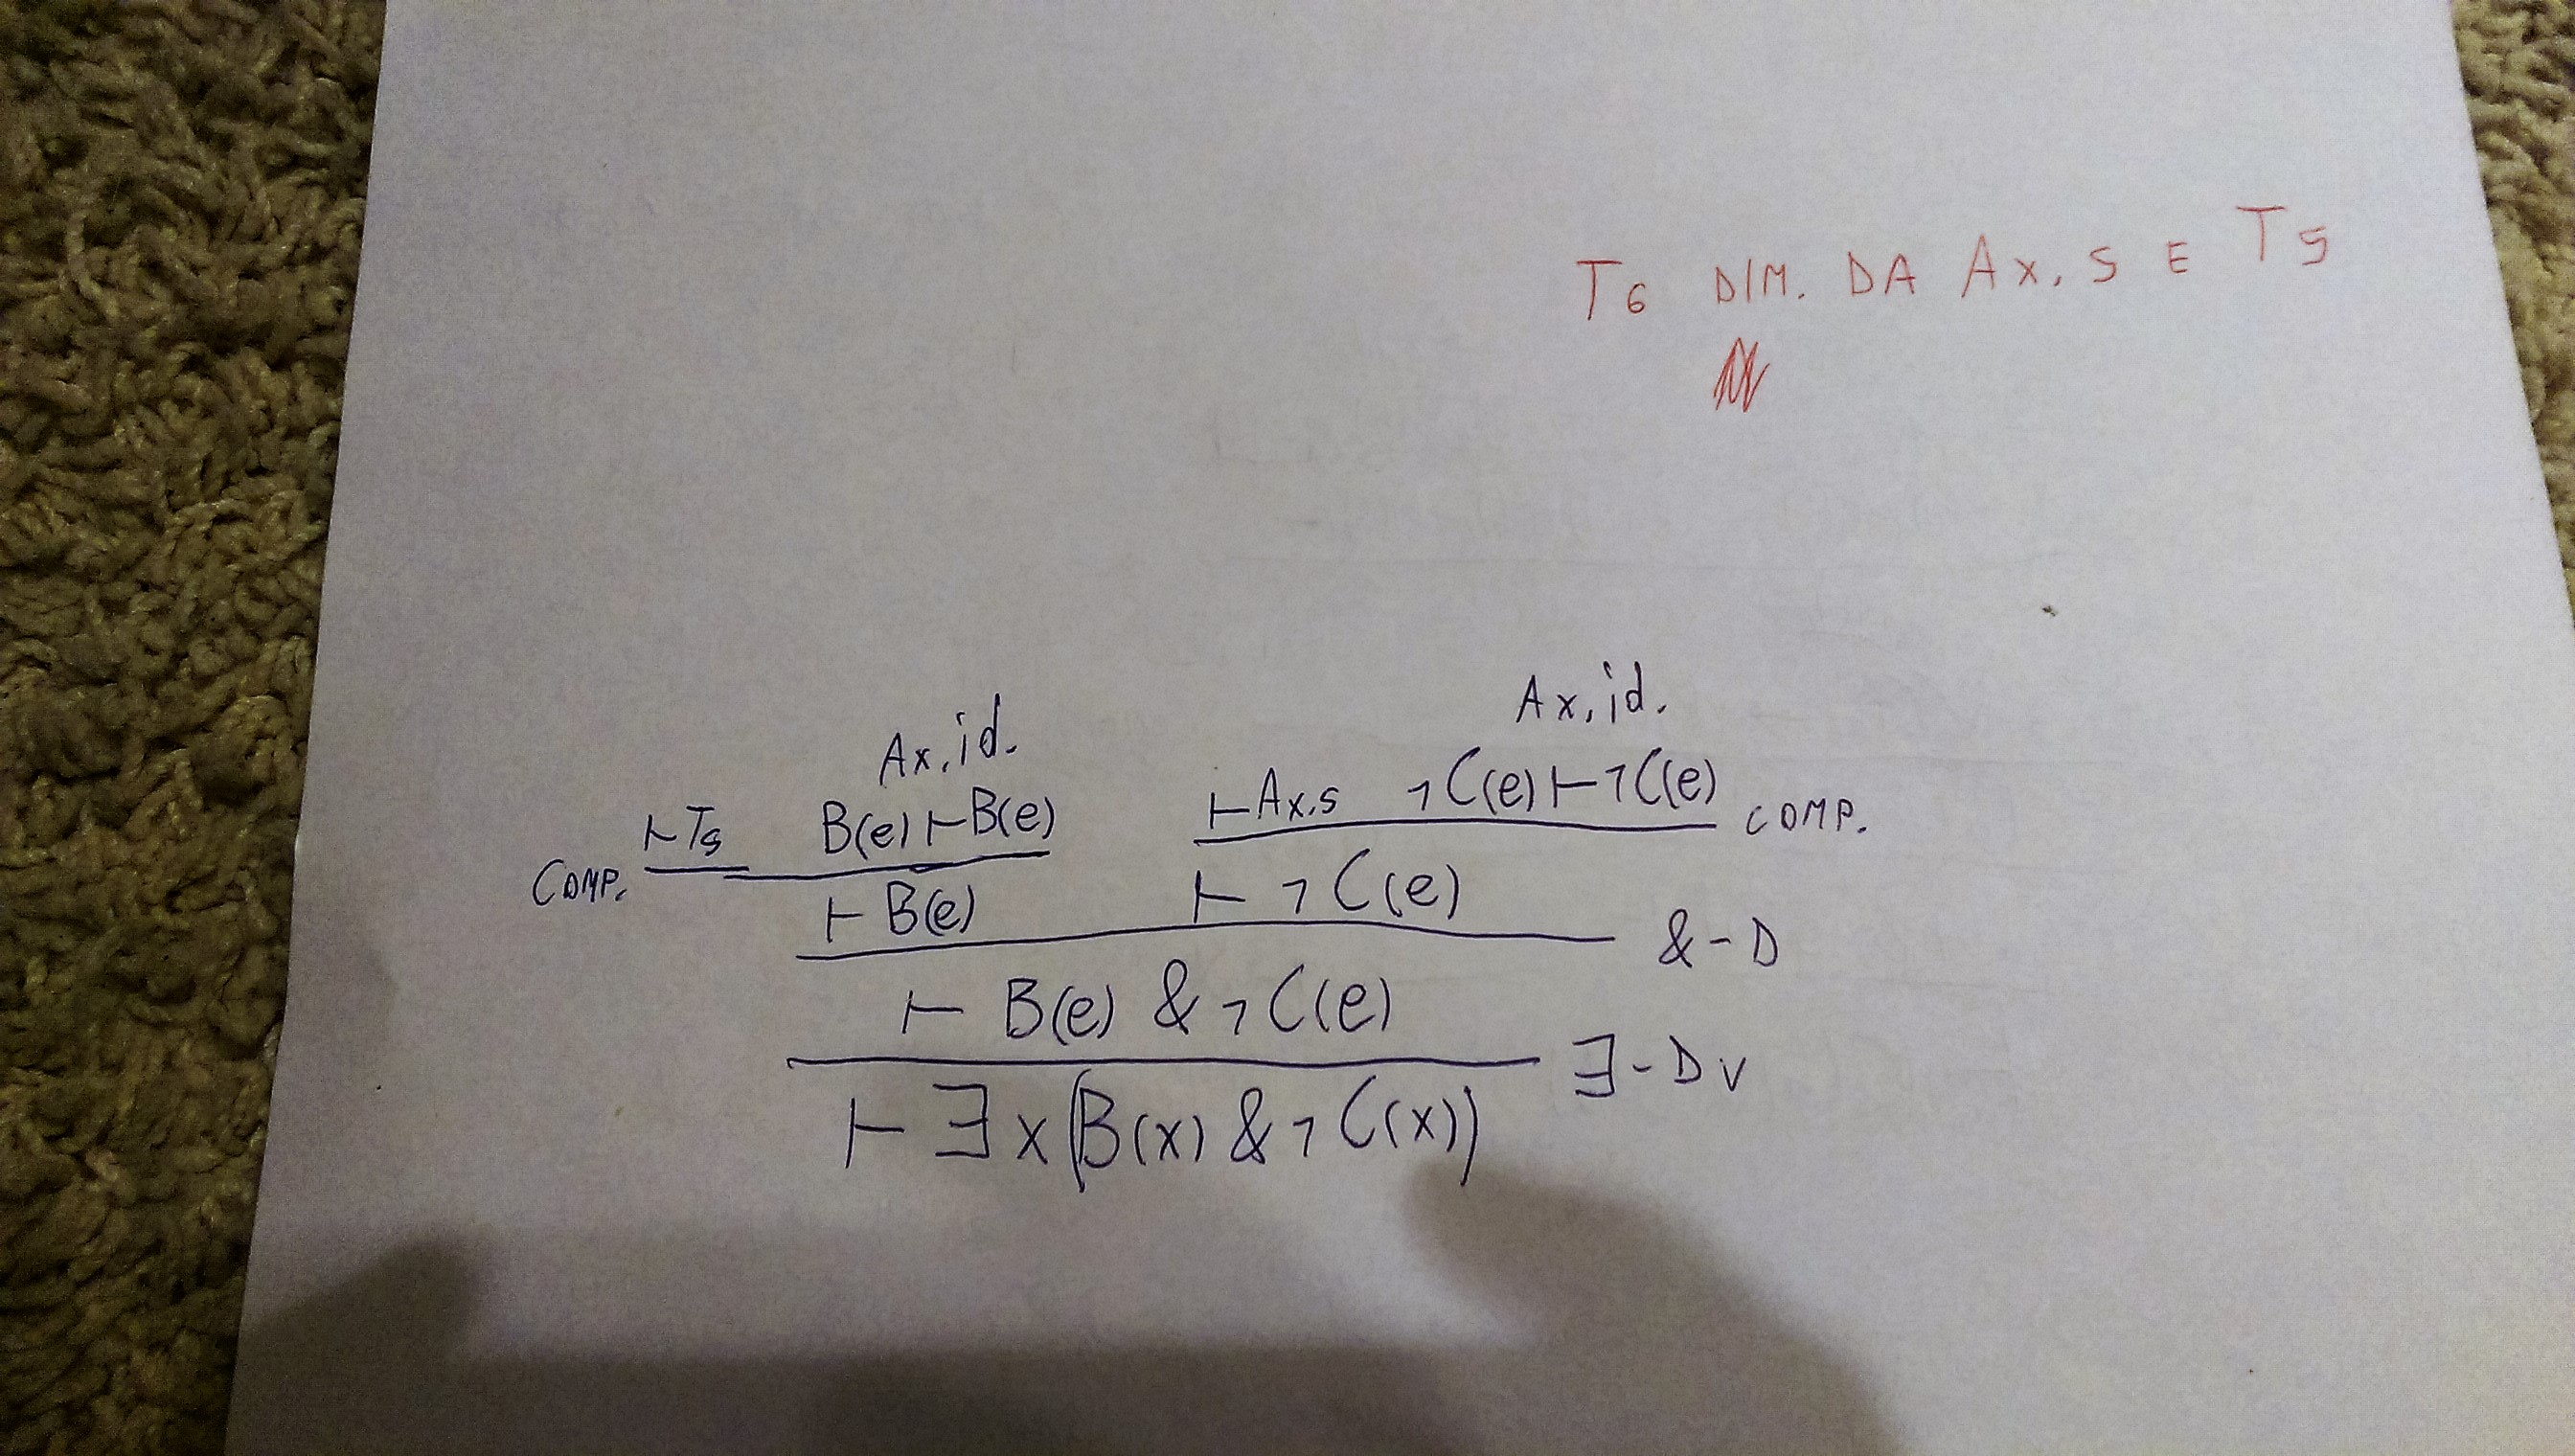 T6 DIM. DA Ax. 5 E T5
Ax. id. Ax. id.
⊢T5 B(e) ⊢ B(e) ⊢Ax.5 ¬C(e) ⊢ ¬C(e) COMP.
COMP.
⊢ B(e) ⊢ ¬C(e)
&-D
⊢ B(e) & ¬C(e)
∃-Dv
⊢ ∃x(B(x) & ¬C(x))